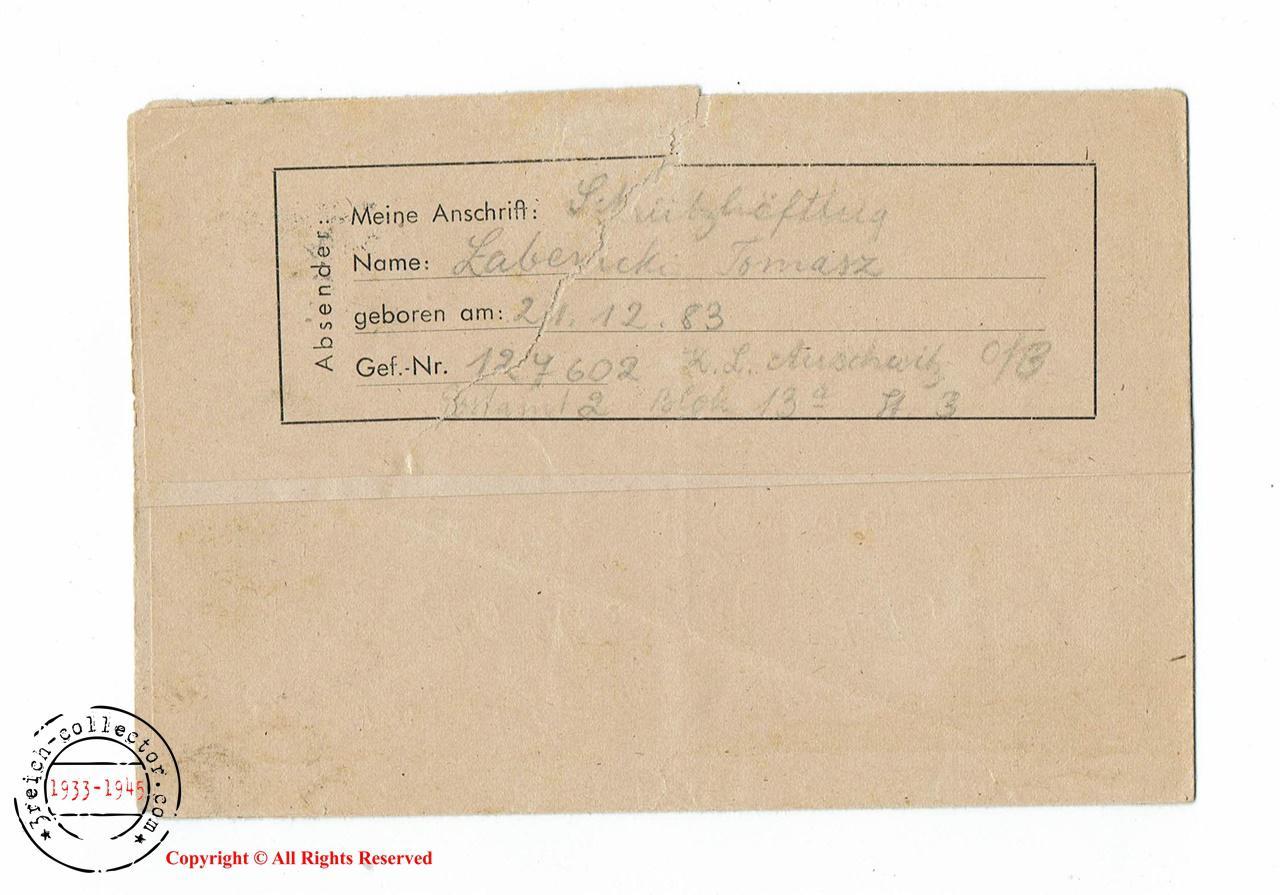 Absender:
Meine Anschrift: Schutzhäftling
Name: Tomasz
geboren am: 21.12.83
Gef.-Nr. 127602 K.L. Auschwitz O/S
Postamt 2 Blok 13a St 3
3reich-collector.com
1933-1945
Copyright © All Rights Reserved